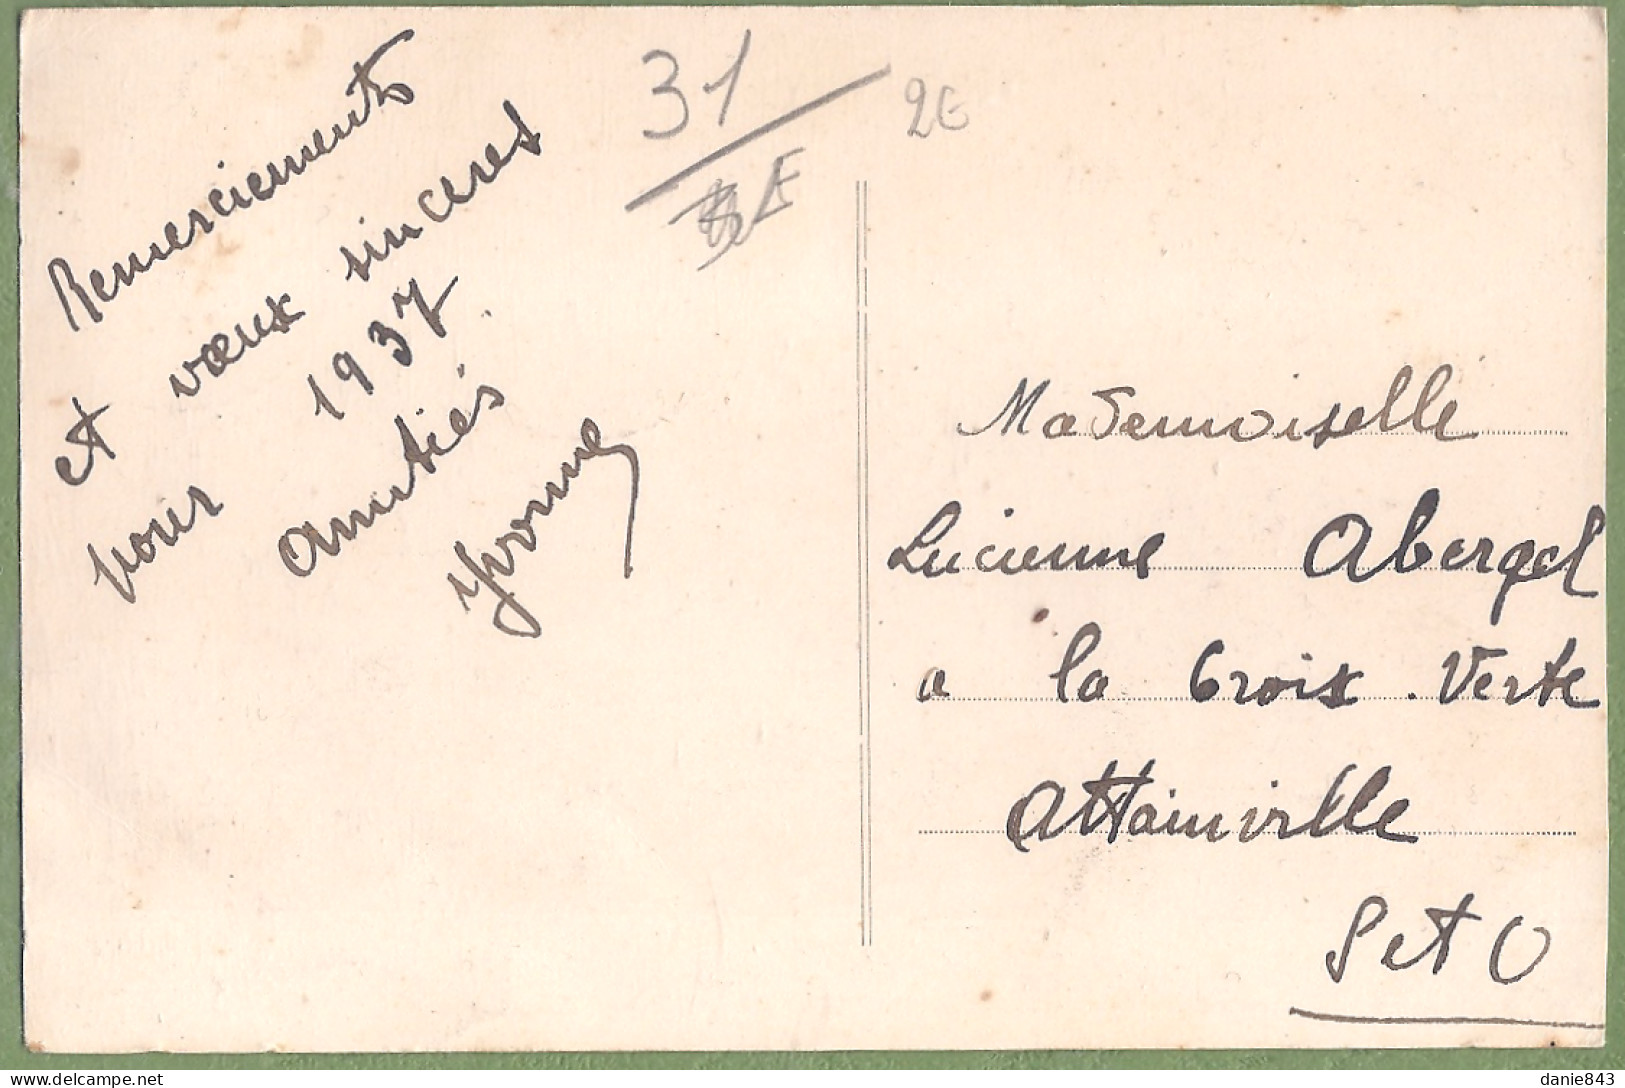 Remerciements
et vœux sinceres
pour 1937
amitiés
Yvonne
31
2€
Mademoiselle
Lucienne Abergel
a la Croix.Verte
Attainville
S et O
delcampe.net
danie843